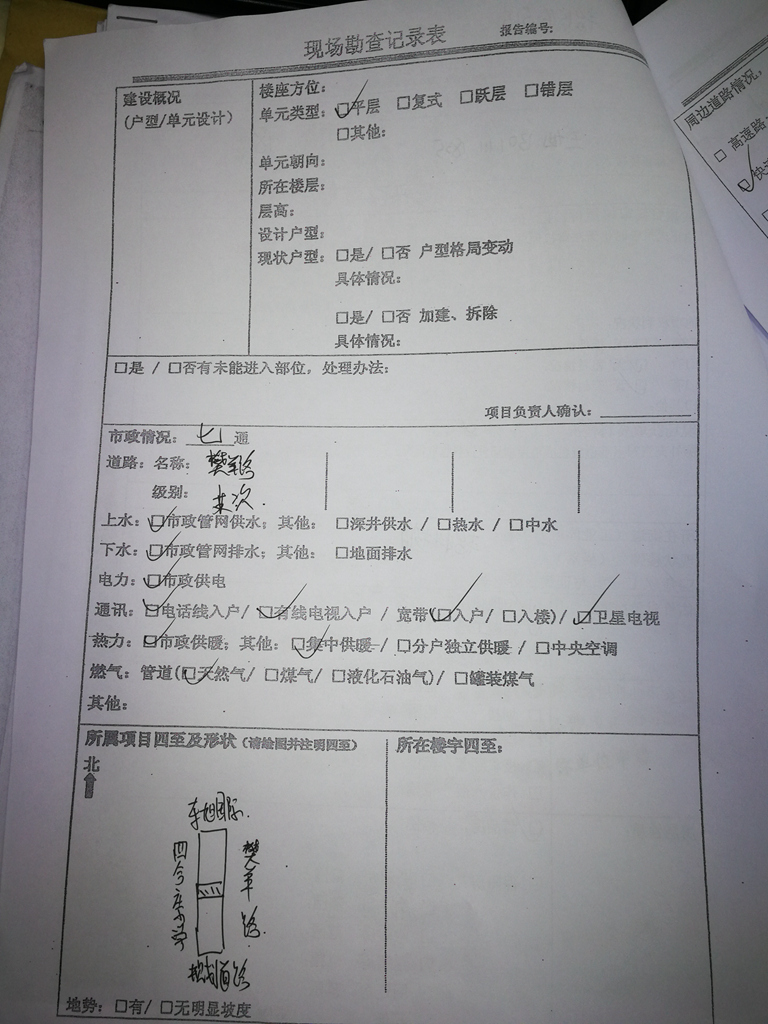 现场勘查记录表
报告编号:
建设概况
(户型/单元设计)
楼座方位:
单元类型: ☑平层 □复式 □跃层 □错层
□其他:
单元朝向:
所在楼层:
层高:
设计户型:
现状户型: □是/ □否 户型格局变动
具体情况:
□是/ □否 加建、拆除
具体情况:
□是 / □否有未能进入部位, 处理办法:
项目负责人确认:
市政情况: 七 通
道路: 名称: 樊羊路
级别: 次
上水: ☑市政管网供水; 其他: □深井供水 / □热水 / □中水
下水: ☑市政管网排水; 其他: □地面排水
电力: ☑市政供电
通讯: ☑电话线入户/ ☑有线电视入户 / 宽带(☑入户/ □入楼)/ ☑卫星电视
热力: ☑市政供暖; 其他: ☑集中供暖 / □分户独立供暖 / □中央空调
燃气: 管道(☑天然气/ □煤气/ □液化石油气)/ □罐装煤气
其他:
所属项目四至及形状 (请绘图并注明四至)
北
国际
四合庄小学
樊羊路
规划道路
所在楼宇四至:
地势: □有/ □无明显坡度
周边道路情况,
□ 高速路
☑ 快